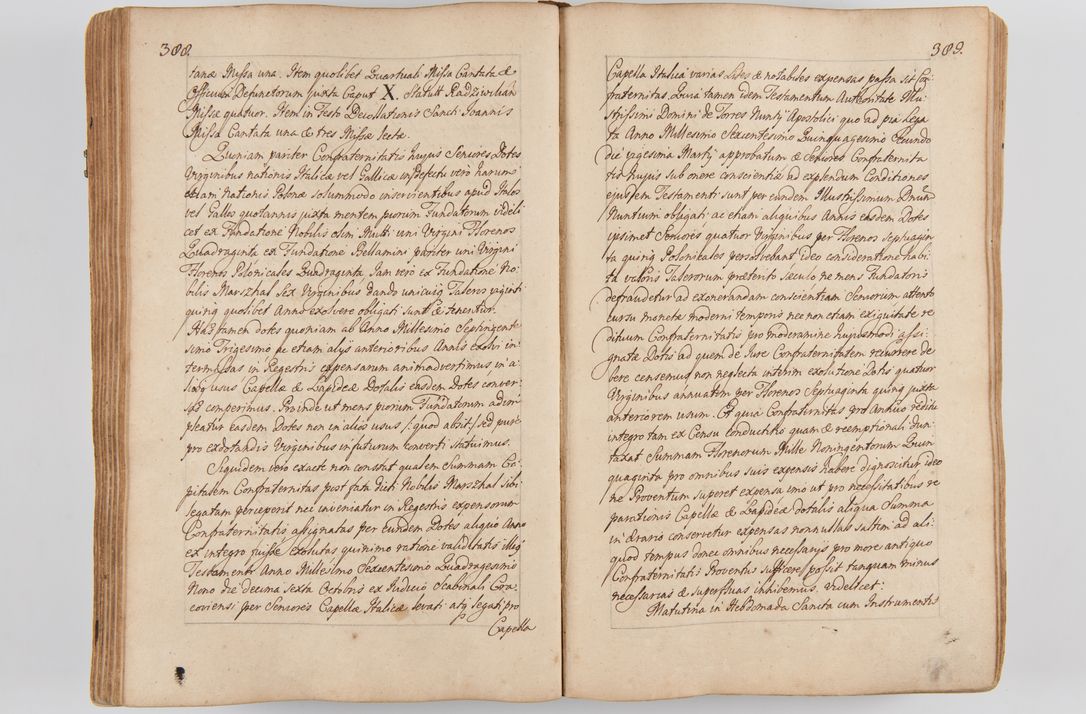 388.
tanæ Missa una. Item quolibet Quartuali Missa Cantata &
Officium Defunctorum juxta Caput X. Statutt Radziwilian
Missæ quatuor. Item in Festo Decollationis Sancti Joannis
Missa Cantata una & tres Missæ lectæ.
Quoniam pariter Confraternitatis hujus Seniores Dotes
Virginibus nationis Italicæ vel Gallicæ in defectu vero harum
etiam Nationis Polonæ solummodo inservientibus apud Italos
vel Gallos quotannis juxta mentem piorum Fundatorum videli
cet ex Fundatione Nobilis olim Multi uni Virgini Florenos
Quadraginta ex Fundatione Bellamini pariter uni Virgini
Florenos Polonicales Quadraginta. Jam vero ex Fundatione No-
bilis Marszhal Sex Virginibus dando unicuiq Taleros viginti
quinq quolibet Anno exolvere obligati sunt & tenentur.
Has tamen dotes quoniam ab Anno Millesimo Septingente
simo Trigesimo ac etiam alijs anterioribus Annis exolvi in-
termissas in Regestris expensarum animadvertimus in a-
liosq usus Capellæ & Lapideæ Dotalis easdem Dotes conver-
sas comperimus. Proinde ut mens piorum Fundatorum adim
pleatur easdem Dotes non in alios usus /: quod absit:/ sed pure
pro exdotandis Virginibus infuturum converti statuimus.
Siquidem vero exacte non constat qualem Summam Ca-
pitalem Confraternitas post fata dicti Nobilis Marszhal Sibi
legatam perceperit nec inveniatur in Regestris expensarum
Confraternitatis assignatas per eundem Dotes aliquo Anno
ex integro fuisse exolutas quinimo ratione validitatis illig
Testamenti Anno Millesimo Sexcentesimo Quadragesimo
Nono die decima sexta Octobris ex Judicio Scabinali Cra-
coviensi per Seniores Capellæ Italicæ levati atq legati pro
Capella
389.
Capella Italica varias Lites & notabiles expensas passa sit Con-
fraternitas. Quia tamen idem Testamentum Authoritate Illu-
strissimi Domini de Torres Nuntij Apostolici quo ad pia lega
ta Anno Millesimo Sexcentesimo Quinquagesimo Secundo
die vigesima Martij approbatum & Seniores Confraternita
tis hujus sub onere conscientiæ ad explendum Conditiones
ejusdem Testamenti sunt per eundem Illustrissimum Dnum
Nuntium obligati: ac etiam aliquibus Annis easdem Dotes
ipsimet Seniores quatuor Virginibus per Florenos Septuagin
ta quinq Polonicales persolvebant ideo consideratione habi
ta valoris Talerorum præterito sæculo ne mens Fundatoris
defraudetur ad exonerandam conscientiam Seniorum attento
cursu monetæ moderni temporis nec non etiam exiguitate re
dituum Confraternitatis pro moderamine hujusmodi assi-
gnatæ Dotis ad quem de Jure Confraternitatem recurrere de
bere censemus non neglecta interim exolutione Dotis quatuor
Virginibus annuatim per Florenos Septuaginta quinq juxta
anteriorem usum. Et quia Confraternitas pro Annuo reditu
integro tam ex Censu conductitio quam & reemptionali dun-
taxat Summam Florenorum Mille Noningentorum Quin
quaginta pro omnibus suis expensis habere dignoscitur ideo
ne Proventum superet expensa imo ut pro necessitatibus re
parationis Capellæ & Lapideæ dotalis aliqua Summa
in Ærario conservetur expensas nonnullas saltem ad ali-
quod tempus donec omnibus necessarijs pro more antiquo
Confraternitatis Proventus sufficere possit tanquam minus
necessarias & superfluas inhibemus. videlicet:
Matutina in Hebdomada Sancta cum Instrumentis